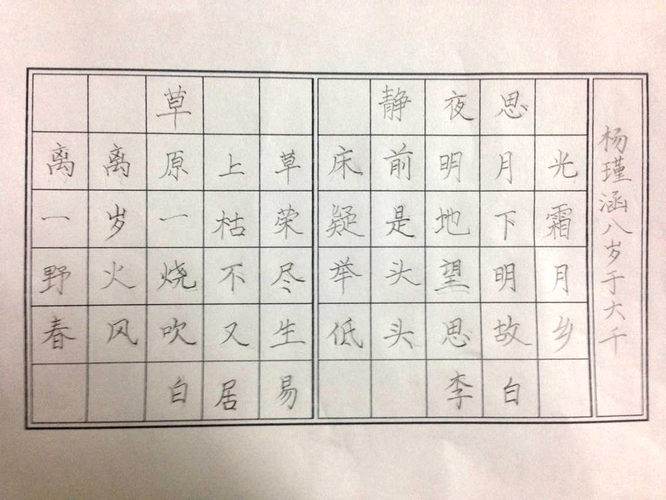 草
离离原上草
一岁一枯荣
野火烧不尽
春风吹又生
白居易
静夜思
床前明月光
疑是地下霜
举头望明月
低头思故乡
李白
杨瑾涵八岁于大千